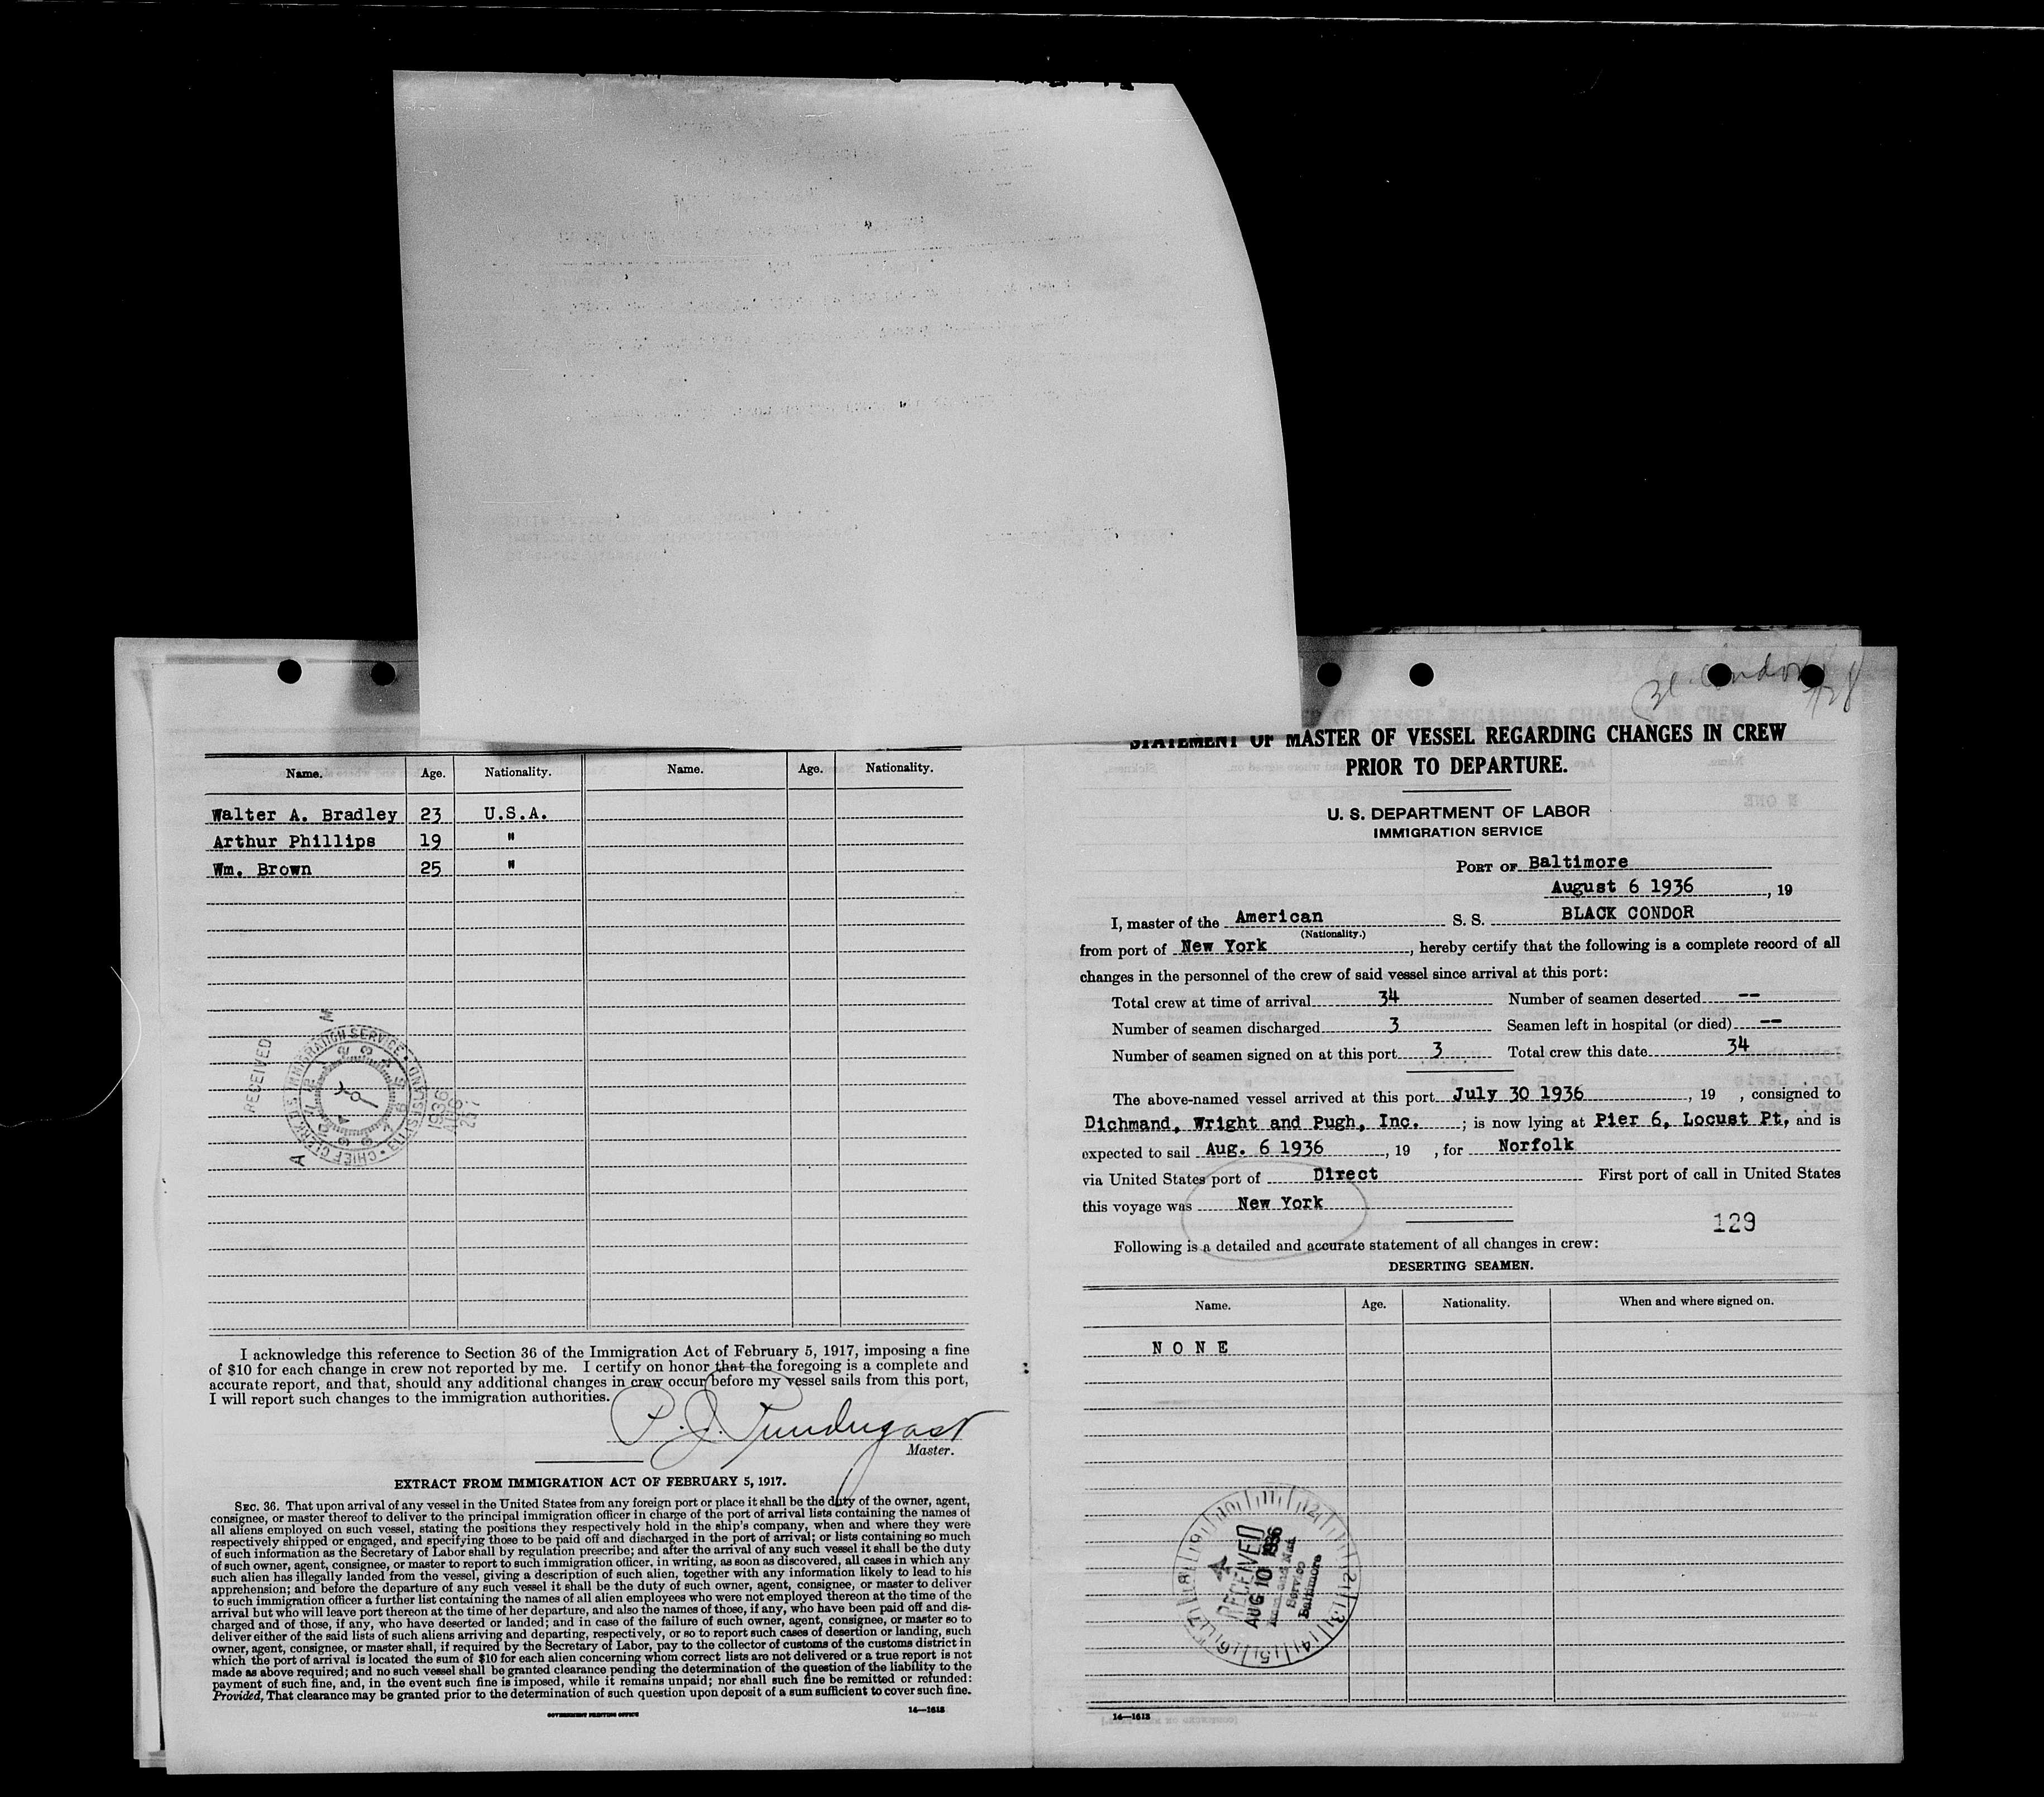 Name. Age. Nationality. Name. Age. Nationality.
Walter A. Bradley 23 U.S.A.
Arthur Phillips 19 "
Wm. Brown 25 "
RECEIVED
A M
U.S. IMMIGRATION SERVICE
CHIEF CLERK
1936
I acknowledge this reference to Section 36 of the Immigration Act of February 5, 1917, imposing a fine
of $10 for each change in crew not reported by me. I certify on honor that the foregoing is a complete and
accurate report, and that, should any additional changes in crew occur before my vessel sails from this port,
I will report such changes to the immigration authorities.
P. J. Pendergast
Master.
EXTRACT FROM IMMIGRATION ACT OF FEBRUARY 5, 1917.
SEC. 36. That upon arrival of any vessel in the United States from any foreign port or place it shall be the duty of the owner, agent,
consignee, or master thereof to deliver to the principal immigration officer in charge of the port of arrival lists containing the names of
all aliens employed on such vessel, stating the positions they respectively hold in the ship's company, when and where they were
respectively shipped or engaged, and specifying those to be paid off and discharged in the port of arrival; or lists containing so much
of such information as the Secretary of Labor shall by regulation prescribe; and after the arrival of any such vessel it shall be the duty
of such owner, agent, consignee, or master to report to such immigration officer, in writing, as soon as discovered, all cases in which any
such alien has illegally landed from the vessel, giving a description of such alien, together with any information likely to lead to his
apprehension; and before the departure of any such vessel it shall be the duty of such owner, agent, consignee, or master to deliver
to such immigration officer a further list containing the names of all alien employees who were not employed thereon at the time of the
arrival but who will leave port thereon at the time of her departure, and also the names of those, if any, who have been paid off and dis-
charged and of those, if any, who have deserted or landed; and in case of the failure of such owner, agent, consignee, or master so to
deliver either of the said lists of such aliens arriving and departing, respectively, or so to report such cases of desertion or landing, such
owner, agent, consignee, or master shall, if required by the Secretary of Labor, pay to the collector of customs of the customs district in
which the port of arrival is located the sum of $10 for each alien concerning whom correct lists are not delivered or a true report is not
made as above required; and no such vessel shall be granted clearance pending the determination of the question of the liability to the
payment of such fine, and, in the event such fine is imposed, while it remains unpaid; nor shall such fine be remitted or refunded:
Provided, That clearance may be granted prior to the determination of such question upon deposit of a sum sufficient to cover such fine.
GOVERNMENT PRINTING OFFICE 14—1613
Bl. Condor
STATEMENT OF MASTER OF VESSEL REGARDING CHANGES IN CREW
PRIOR TO DEPARTURE.
U. S. DEPARTMENT OF LABOR
IMMIGRATION SERVICE
PORT OF Baltimore
August 6 1936, 19
I, master of the American S. S. BLACK CONDOR
(Nationality.)
from port of New York, hereby certify that the following is a complete record of all
changes in the personnel of the crew of said vessel since arrival at this port:
Total crew at time of arrival 34 Number of seamen deserted --
Number of seamen discharged 3 Seamen left in hospital (or died) --
Number of seamen signed on at this port 3 Total crew this date 34
The above-named vessel arrived at this port July 30 1936, 19 , consigned to
Dichmand, Wright and Pugh, Inc. ; is now lying at Pier 6, Locust Pt, and is
expected to sail Aug. 6 1936, 19 , for Norfolk
via United States port of Direct First port of call in United States
this voyage was New York
129
Following is a detailed and accurate statement of all changes in crew:
DESERTING SEAMEN.
Name. Age. Nationality. When and where signed on.
N O N E
RECEIVED
AUG 10 1936
Imm and Nat
Service
Baltimore
14—1613